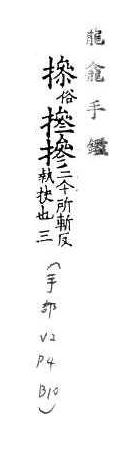 龍龕手鑑
掺俗㨻摻二今所斬反執抶也三
(手部 V2 P4 B10)